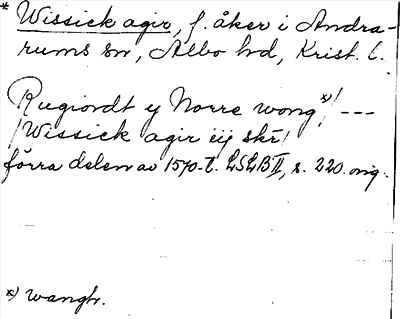 * Wissick agir, f. åker i Andra-
rums sn, Albo hd, Krist. l.
Rugiordt y Norre wong*)/ ---
/Wissick agir iij skr/
förra delen av 1570-t. LSLB II, s. 220. orig.
*) wangh.